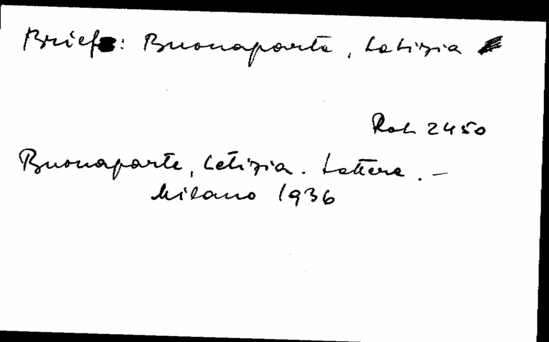 Briefe: Buonaparte, Letizia
Roh 2450
Buonaparte, Letizia. Lettere. –
Milano 1936